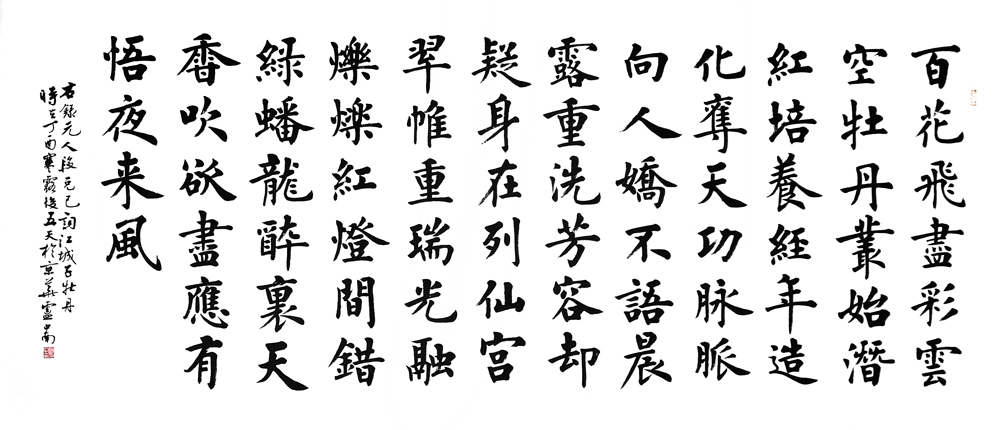 百花飛盡彩雲
空牡丹叢始潛
紅培養經年造
化奪天功脉脈
向人嬌不語晨
露重洗芳容却
疑身在列仙宫
翆帷重瑞光融
爍爍紅燈間錯
綠蟠龍醉裏天
香吹欲盡應有
悟夜来風
右錄元人段克己詞江城子牡丹
時在丁酉寒露後五天於京華